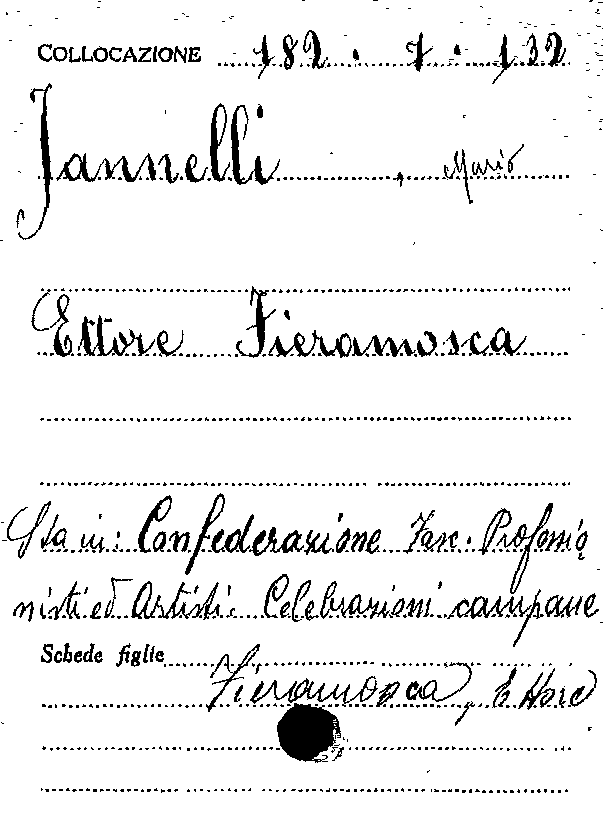 COLLOCAZIONE 182. 7. 132
Jannelli, Mario
Ettore Fieramosca
Sta in: Confederazione Fasc. Profession
nisti ed Artisti. Celebrazioni campane
Schede figlie
Fieramosca, Ettore